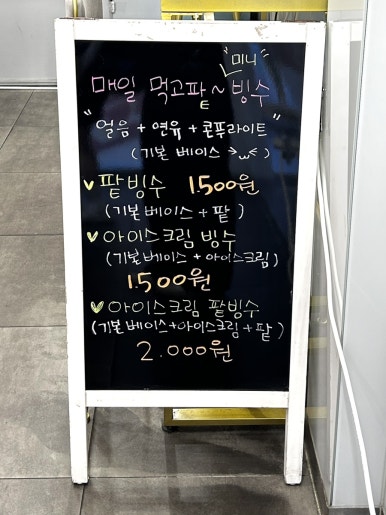 "미니"
매일 먹고팥~빙수
"얼음+연유+콘푸라이트"
(기본 베이스 >ω<)
팥빙수 1.500원
(기본베이스+팥)
아이스크림 빙수
(기본베이스+아이스크림)
1.500원
아이스크림 팥빙수
(기본베이스+아이스크림+팥)
2.000원